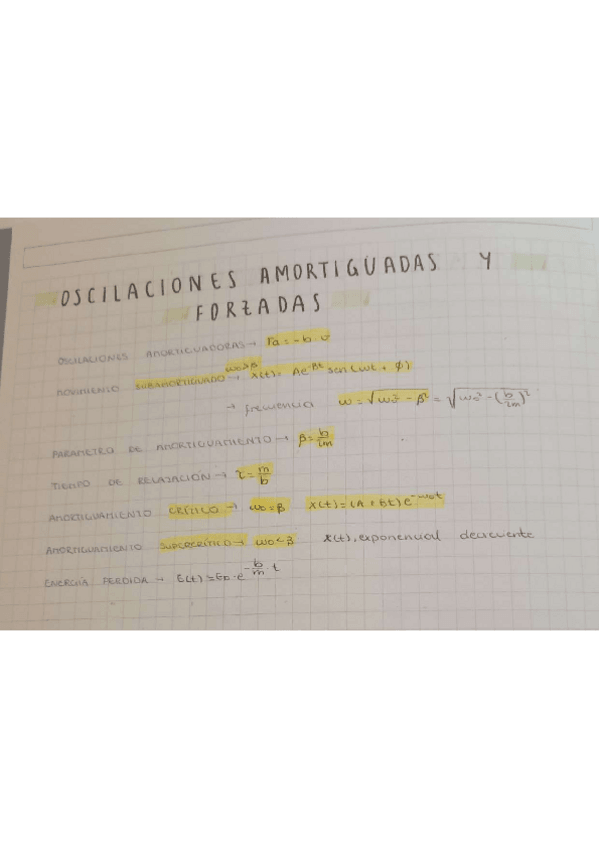 OSCILACIONES AMORTIGUADAS Y
FORZADAS
OSCILACIONES AMORTIGUADORAS → Fa = -b·v
MOVIMIENTO SUBAMORTIGUADO → ω₀>β x(t)= Ae^-βt sen(ωt + φ)
→ frecuencia ω = √(ω₀² - β²) = √(ω₀² - (b/2m)²)
PARAMETRO DE AMORTIGUAMIENTO → β = b/2m
TIEMPO DE RELAJACIÓN → τ = m/b
AMORTIGUAMIENTO CRÍTICO → ω₀ = β x(t) = (A + Bt) e^-ω₀t
AMORTIGUAMIENTO → ω₀ < β x(t), exponencial decreciente
ENERGÍA PERDIDA → E(t) = E₀·e^(-b/m · t)